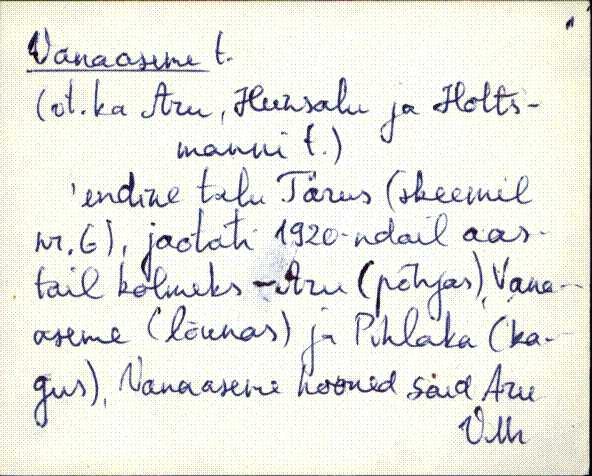 Vanaaseme t.
(vt. ka Aru, Hunsalu ja Holts-
manni t.)
'endine talu Tärus (skeemil
nr. 6), jaotati 1920-ndail aas-
tail kolmeks - Aru (põhjas), Vana-
aseme (lõunas) ja Pihlaka (ka-
gus), Vanaaseme hooned said Aru